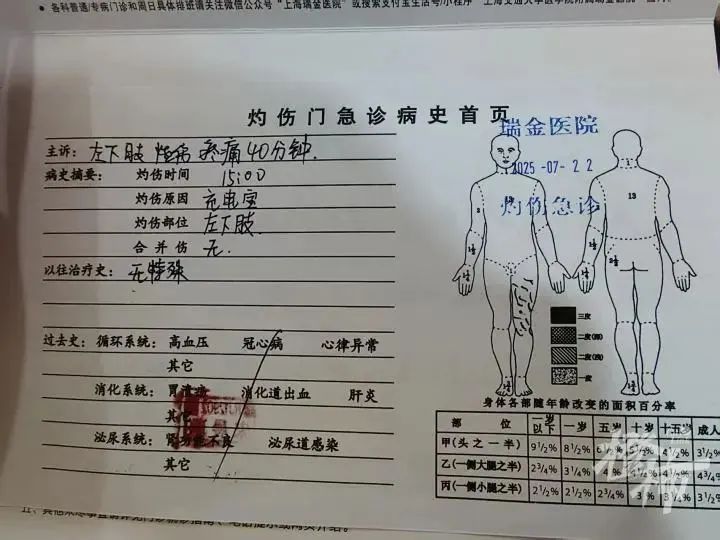 ● 各科普通/专病门诊和周日具体排班请关注微信公众号“上海瑞金医院”或搜索支付宝生活号/小程序“上海交通大学医学院附属瑞金医院”
灼伤门急诊病史首页
瑞金医院
2025-07-22
灼伤急诊
主诉: 左下肢 灼伤 疼痛40分钟.
病史摘要: 灼伤时间 15:00
灼伤原因 充电宝
灼伤部位 左下肢.
合并伤 无.
以往治疗史: 无特殊
过去史: 循环系统: 高血压 冠心病 心律异常
其它
消化系统: 胃溃疡 消化道出血 肝炎
其它
泌尿系统: 肾功能不良 泌尿道感染
其它
13
三度
二度(深)
二度(浅)
一度
身体各部随年龄改变的面积百分率
部 位 一岁以下 一岁 五岁 十岁 十五岁 成人
甲(头之一半) 9½ 8½ 6½ 5½ 4½ 3½
乙(一侧大腿之半) 2¾ 3¼ 4 4¼ 4½ 4¾
丙(一侧小腿之半) 2½ 2½ 2¾ 3 3¼ 3½